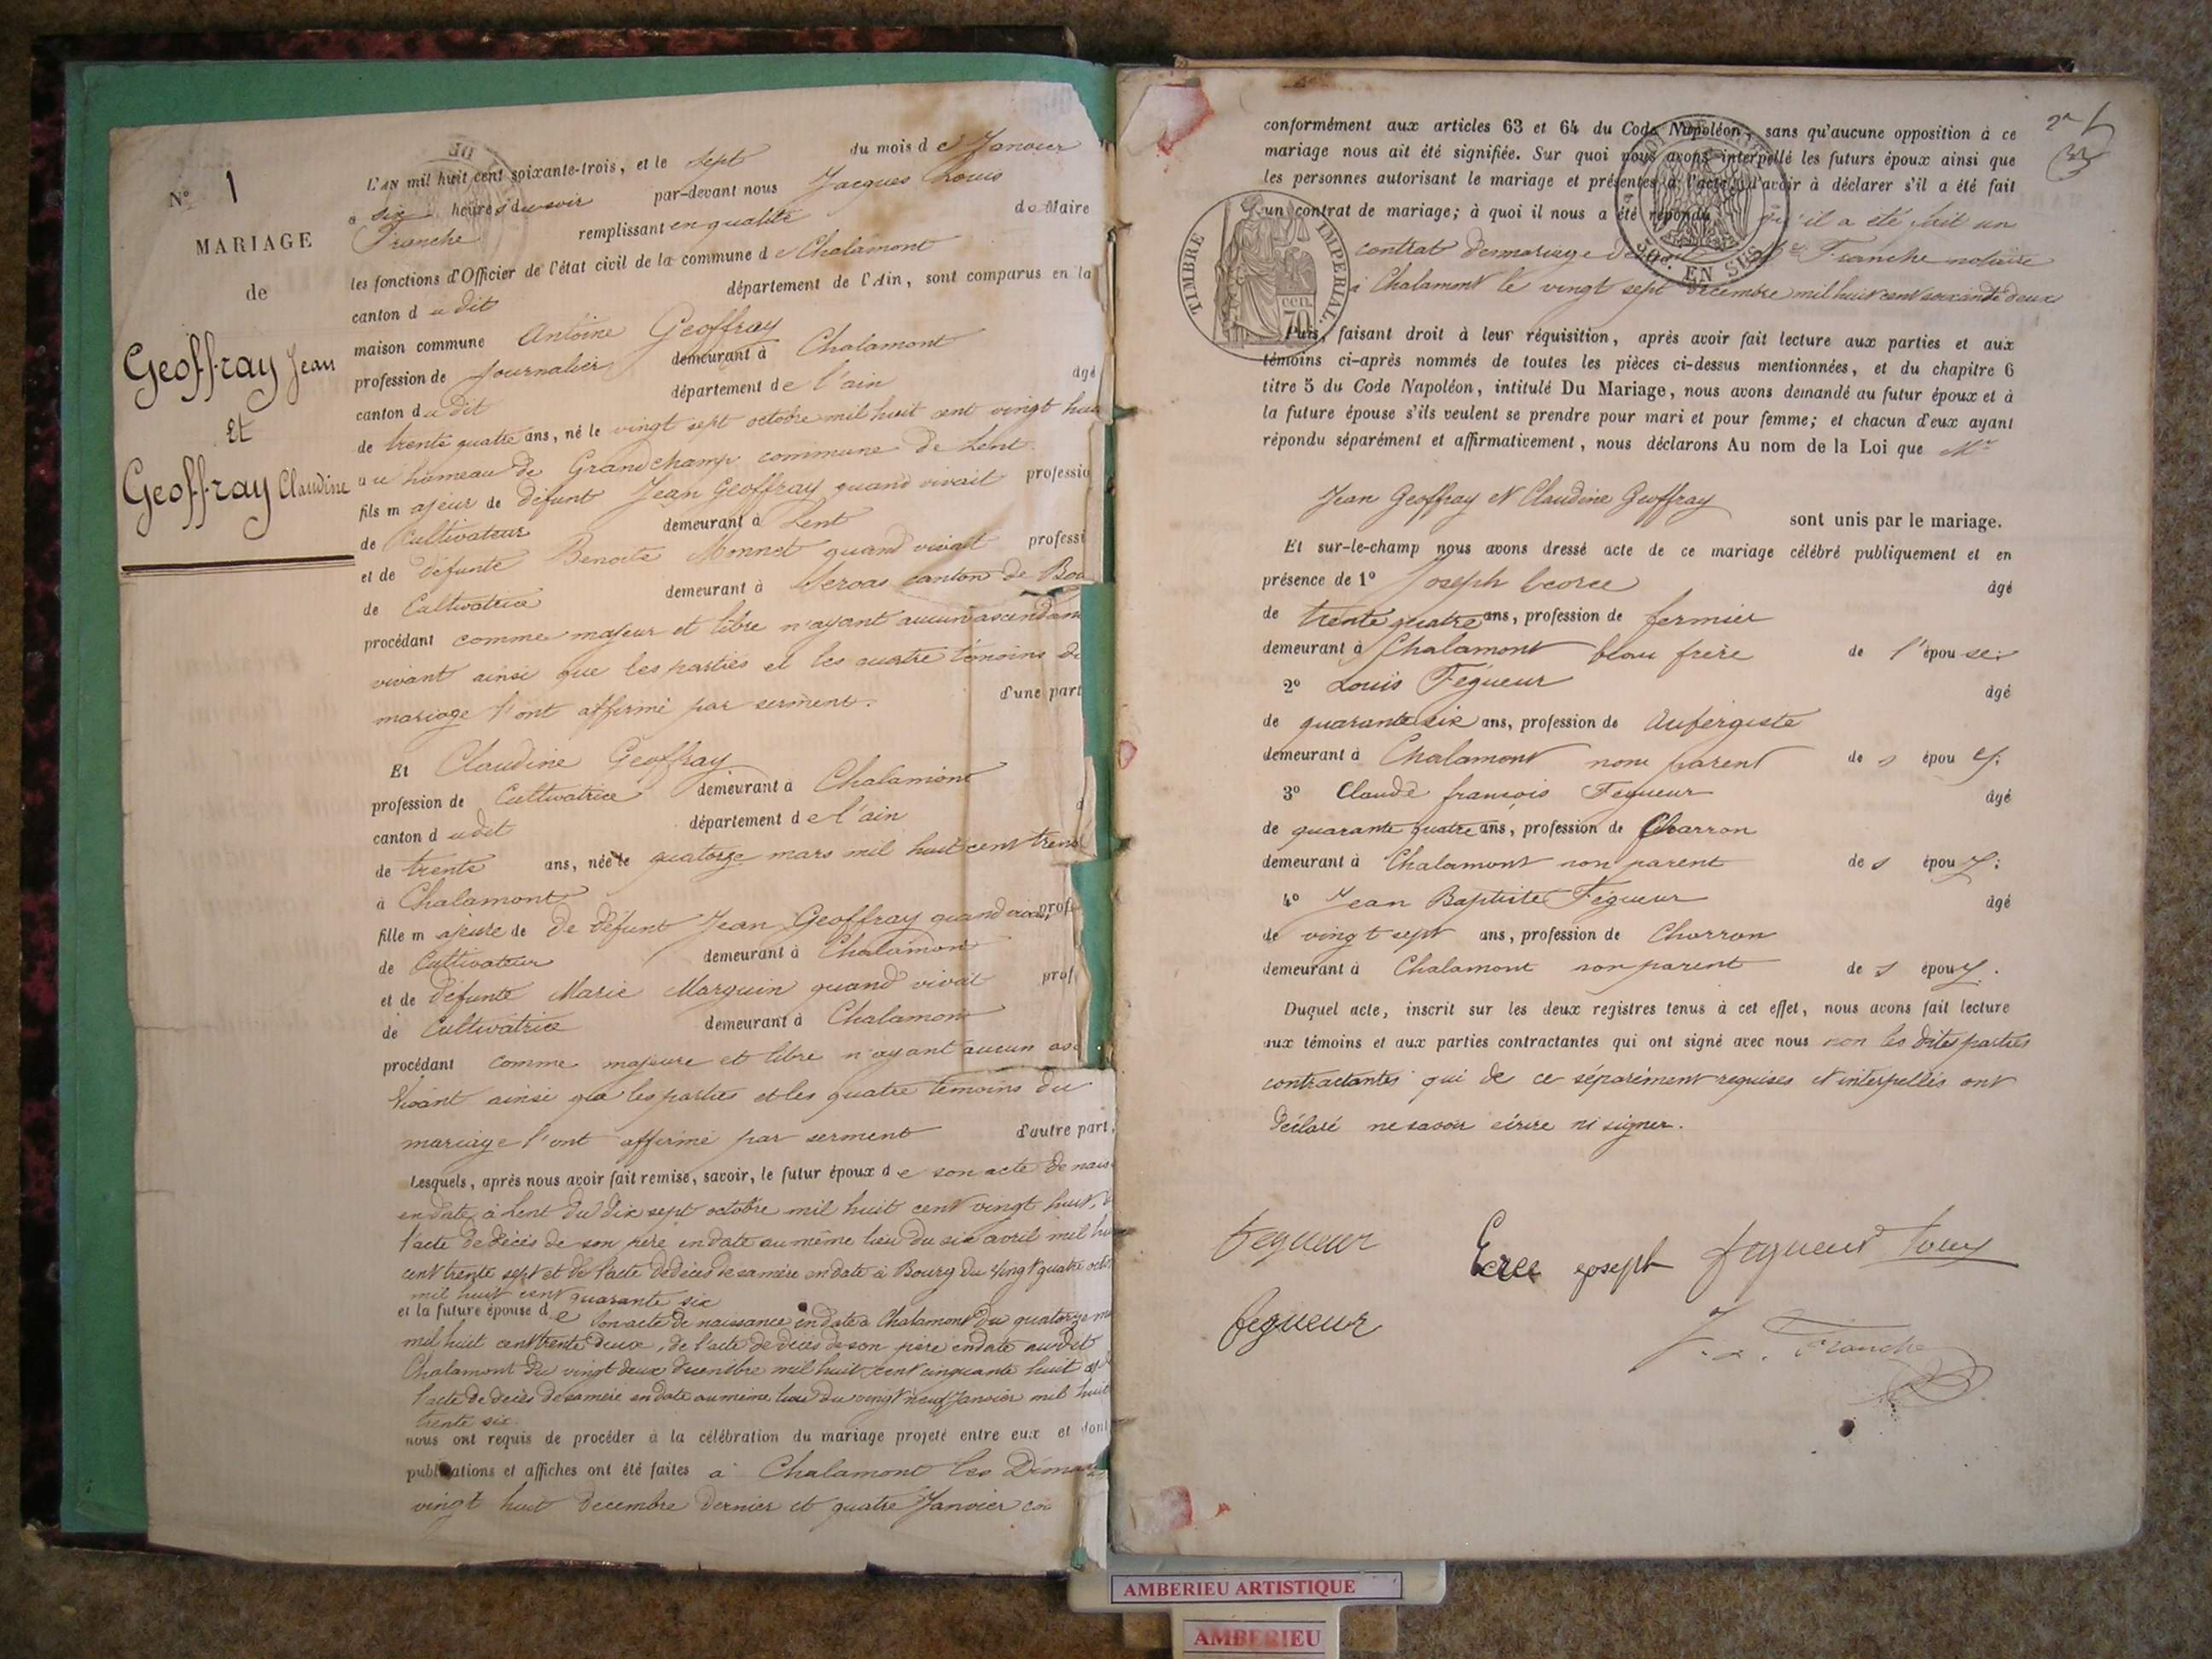 N° 1
MARIAGE
de
Geoffray Jean
Et
Geoffray Claudine
L'AN mil huit cent soixante-trois, et le sept du mois de Janvier
a six heures du soir par-devant nous Jacques Louis
Franche remplissant en qualité de Maire
les fonctions d'Officier de l'état civil de la commune de Chalamont
canton du dit département de l'Ain, sont comparus en la
maison commune Antoine Geoffray
profession de Journalier demeurant à Chalamont
canton du dit département de l'ain âgé
de trente quatre ans, né le vingt sept octobre mil huit cent vingt huit
au hameau de Grandchamp commune de Lent
fils majeur de défunt Jean Geoffray quand vivait professio
de Cultivateur demeurant à Lent
et de défunte Benoite Monnet quand vivait professi
de Cultivatrice demeurant à Servas canton de Bou
procédant comme majeur et libre n'ayant aucun ascendant
vivant ainsi que les parties et les quatre témoins du
mariage l'ont affirmé par serment. d'une part
Et Claudine Geoffray
profession de Cultivatrice demeurant à Chalamont
canton dudit département de l'ain
de trente ans, née le quatorze mars mil huit cent trent
à Chalamont
fille majeure de De défunt Jean Geoffray quand vivait prof
de Cultivateur demeurant à Chalamont
et de défunte Marie Marguin quand vivait prof
de Cultivatrice demeurant à Chalamont
procédant comme majeure et libre n'ayant aucun asc
vivant ainsi que les parties et les quatre témoins du
mariage l'ont affirmé par serment d'autre part,
Lesquels, après nous avoir fait remise, savoir, le futur époux de son acte de nais
en date à Lent du dix sept octobre mil huit cent vingt huit, de
l'acte de décès de son père en date au même lieu du six avril mil hui
cent trente sept et de l'acte de décès de sa mère en date à Bourg du vingt quatre octo
mil huit cent quarante six
et la future épouse de son acte de naissance en date à Chalamont du quatorze ma
mil huit cent trente deux, de l'acte de décès de son père en date audit
Chalamont du vingt deux décembre mil huit cent cinquante huit et de
l'acte de décès de sa mère en date au même lieu du vingt neuf Janvier mil huit
trente six.
nous ont requis de procéder à la célébration du mariage projeté entre eux et dont
publications et affiches ont été faites à Chalamont les Dimanches
vingt huit decembre dernier et quatre Janvier cou
conformément aux articles 63 et 64 du Code Napoléon, sans qu'aucune opposition à ce
mariage nous ait été signifiée. Sur quoi nous avons interpellé les futurs époux ainsi que
les personnes autorisant le mariage et présentes à l'acte, d'avoir à déclarer s'il a été fait
un contrat de mariage; à quoi il nous a été répondu qu'il a été fait un
contrat de mariage devant Me Franche notaire
à Chalamont le vingt sept décembre mil huit cent soixante deux
TIMBRE IMPERIAL
70 cen.
50c. EN SUS
Puis, faisant droit à leur réquisition, après avoir fait lecture aux parties et aux
témoins ci-après nommés de toutes les pièces ci-dessus mentionnées, et du chapitre 6
titre 5 du Code Napoléon, intitulé Du Mariage, nous avons demandé au futur époux et à
la future épouse s'ils veulent se prendre pour mari et pour femme; et chacun d'eux ayant
répondu séparément et affirmativement, nous déclarons Au nom de la Loi que Mr
Jean Geoffray et Claudine Geoffray
sont unis par le mariage.
Et sur-le-champ nous avons dressé acte de ce mariage célébré publiquement et en
présence de 1° Joseph âgé
de trente quatre ans, profession de fermier
demeurant à Chalamont beau frère de l'épouse.
2° Louis Fégueur âgé
de quarante six ans, profession de Aubergiste
demeurant à Chalamont non parent des époux.
3° Claude françois Fegueur âgé
de quarante quatre ans, profession de Charron
demeurant à Chalamont non parent des époux.
4° Jean Baptiste Fégueur âgé
de vingt sept ans, profession de Charron
demeurant à Chalamont non parent des époux.
Duquel acte, inscrit sur les deux registres tenus à cet effet, nous avons fait lecture
aux témoins et aux parties contractantes qui ont signé avec nous non les dites parties
contractantes qui de ce séparément requises et interpellés ont
déclaré ne savoir écrire ni signer.
fegueur
joseph fegueur Louis
fegueur
J. L. Franche
AMBERIEU ARTISTIQUE
AMBERIEU